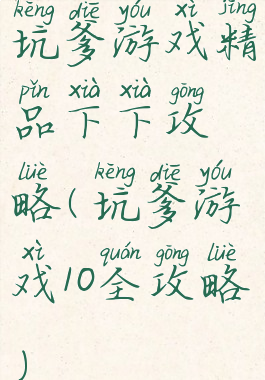 kēng diē yóu xì jīng
坑爹游戏精
pǐn xià xià gōng
品下下攻
lüè kēng diē yóu
略(坑爹游
xì quán gōng lüè
戏10全攻略
)